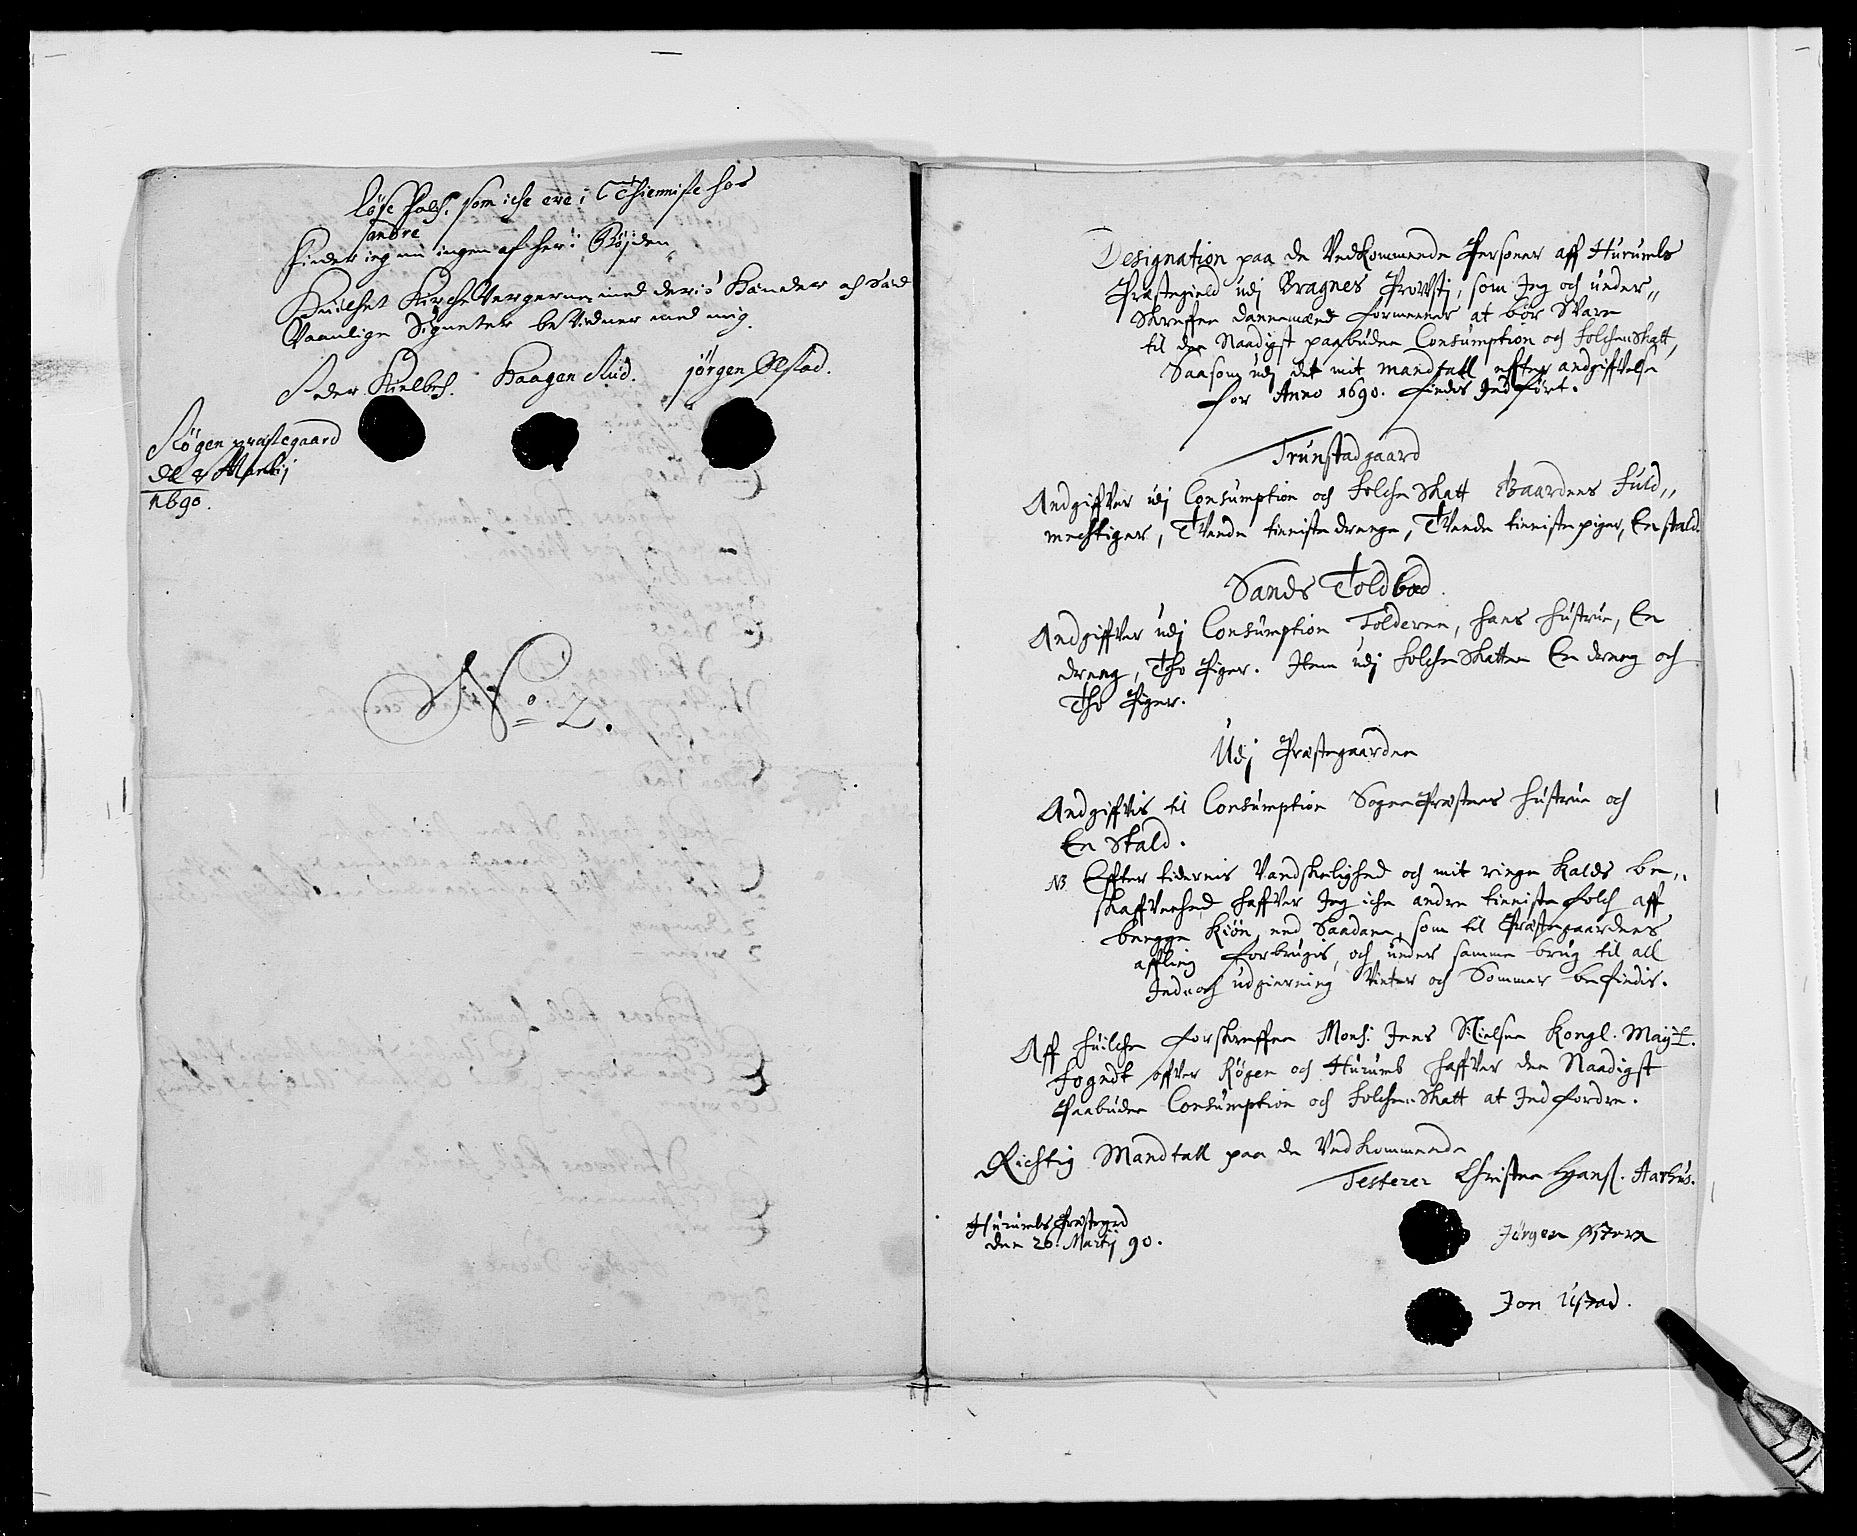 løse Folch, som iche ere i Thienniste hos
andre
finder ieg nu ingen af her i Bøjden
Huilchet Kirche Vergerne med deris Hænder och Sæd
Vaanlige Signeter beVidner med mig
Peder Kielbch. Haagen Rud. jørgen Ølstad.
Røgen præstegaard
d. 8 Martij
1690.
No 2.
Designation paa de VedKommende Personer aff Hurumbs
Præstegield udj Bragnes Prowstj, som Jeg och under„
skrefne dannemænd formeener at bør Svare
til den Naadigst paabudne Consumption och Folche Skatt,
Saasom udj det mit mandtall effter andgiffvelse
for Anno 1690. findes Indført.
Trunstadgaard
Andgiffver udj Consumption och Folche Skatt Gaardens Fuld„
mechtiger, Tvende tieniste drenge, Tvende tieniste piger, En stald.
Sands Toldbod.
Andgiffver udj Consumption Tolderen, hans hustrue, En
dreng, Tho Piger. Item udj Folche Skatten En dreng och
Tho Piger.
Udj Præstegaarden
Andgiffvis til Consumption Sogne Præstens hustrue och
En Stald.
NB. Effter tidernis Vandskelighed och mit ringe Kalds be„
skaffvenhed haffver Jeg iche andre tieniste folch aff
begge Kiøn, end Saadane, som til Præstegaardens
affling forbrugis, och under samme brug til all
Inde och udgierning Vinter och Sommer befindis.
Aff huilche forskreffne Mons: Jens Nielsen Kongl. Mayt.
Fogedt offver Røgen och Hurumb haffver den Naadigst
Paabudne Consumption och Folche Skatt at Indfordre.
Richtig Mandtall paa de VedKommende
Testerer Christen Hanss. Aarhus.
Hurumbs Præstegrd
den 26. Martij 90.
Jørgen Østern
Jon Ustad.